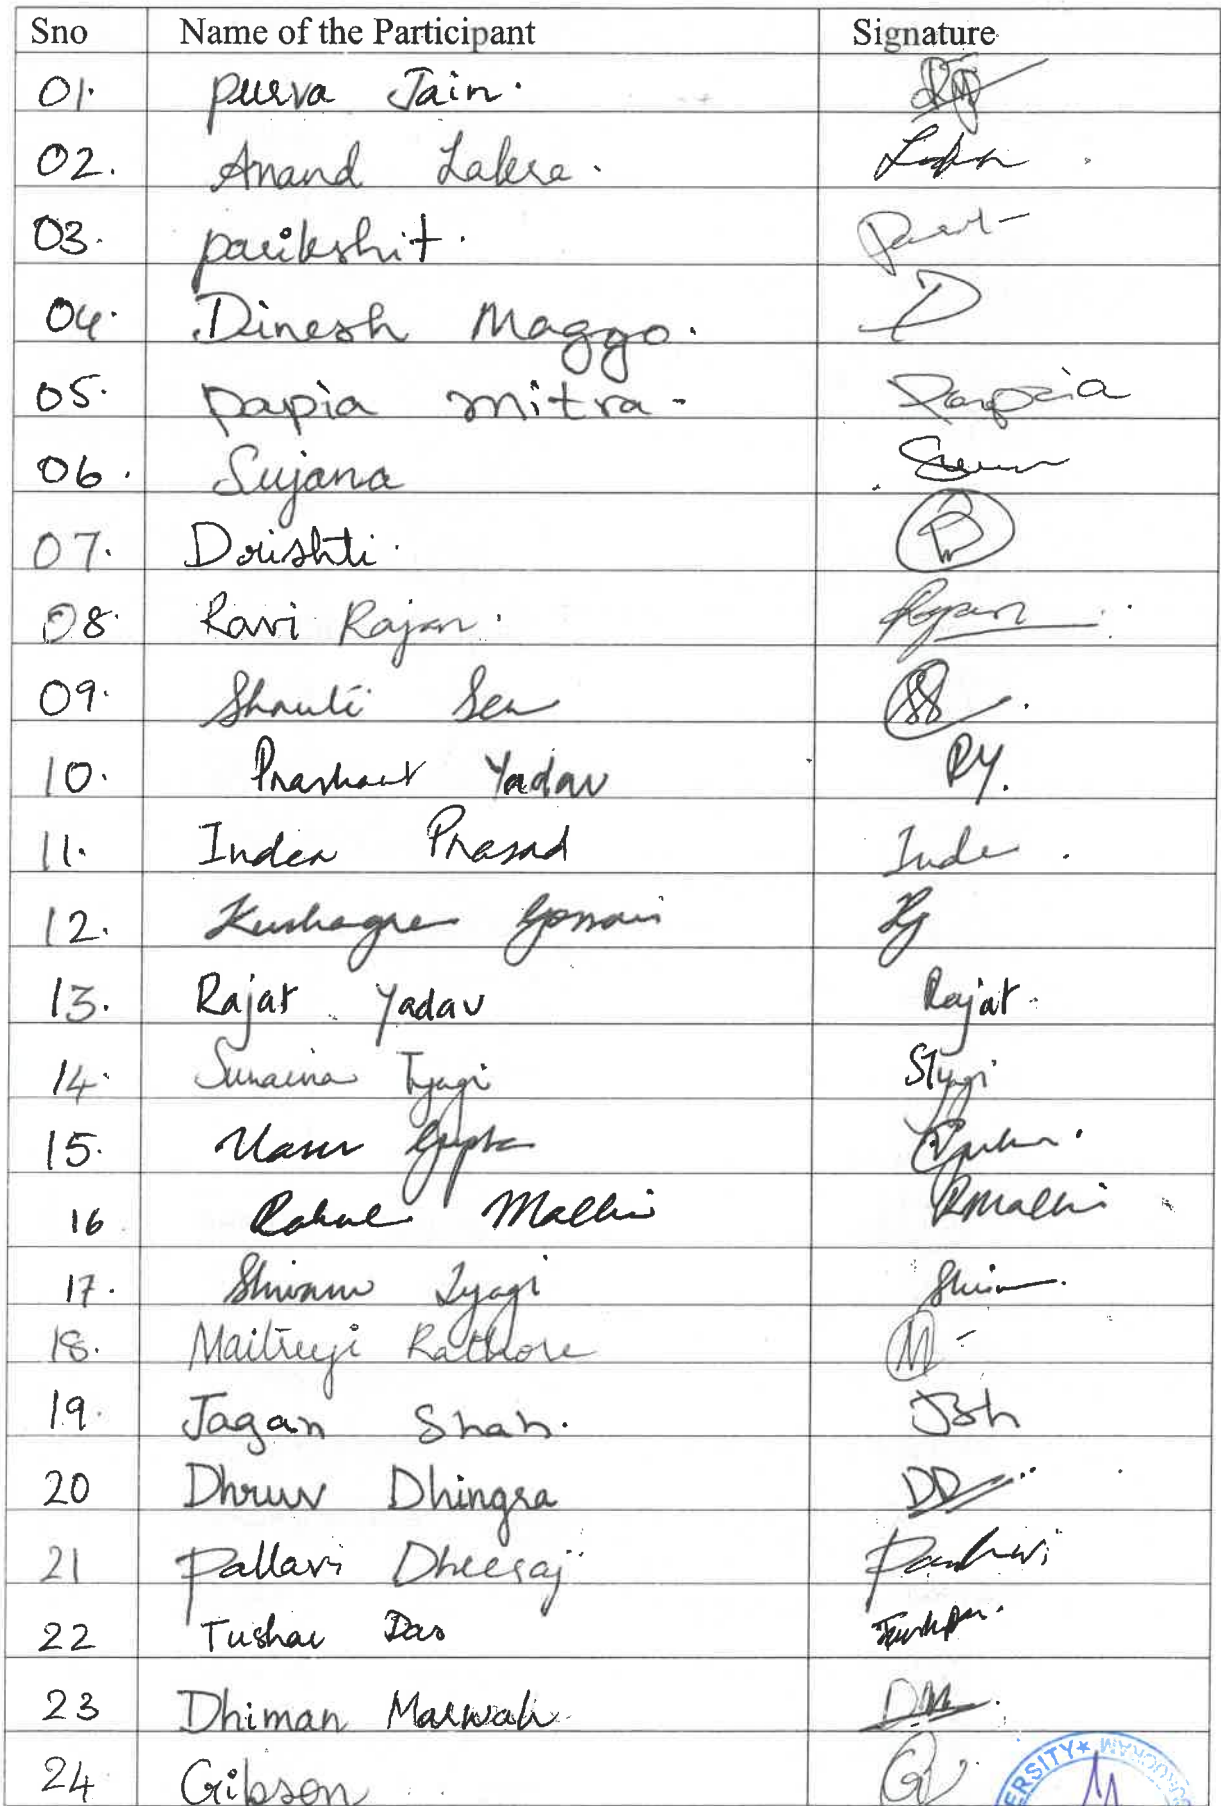 Sno Name of the Participant Signature
01. Purva Jain.
02. Anand Lakra. Lakra
03. parikshit.
04. Dinesh Maggo. D
05. papia mitra- Papia
06. Sujana
07. Drishti.
08. Ravi Rajan. Rajan
09. Shruti Sen SS
10. Prashant Yadav PY.
11. Inder Prasad Inde
12. Kushagra Goswami Kg
13. Rajat Yadav Rajat
14. Sunaina Tyagi STyagi
15. Gupta
16 Rahul Malhi RMalhi
17. Shivam Tyagi Shivam
18. Maitreyi Rathore M
19. Jagan Shah. JSh
20 Dhruv Dhingra DD
21 Pallavi Dheeraj Pallavi
22 Tushar Das Tushar
23 Dhiman Marwah DM
24 Gibson G
ERSITY★